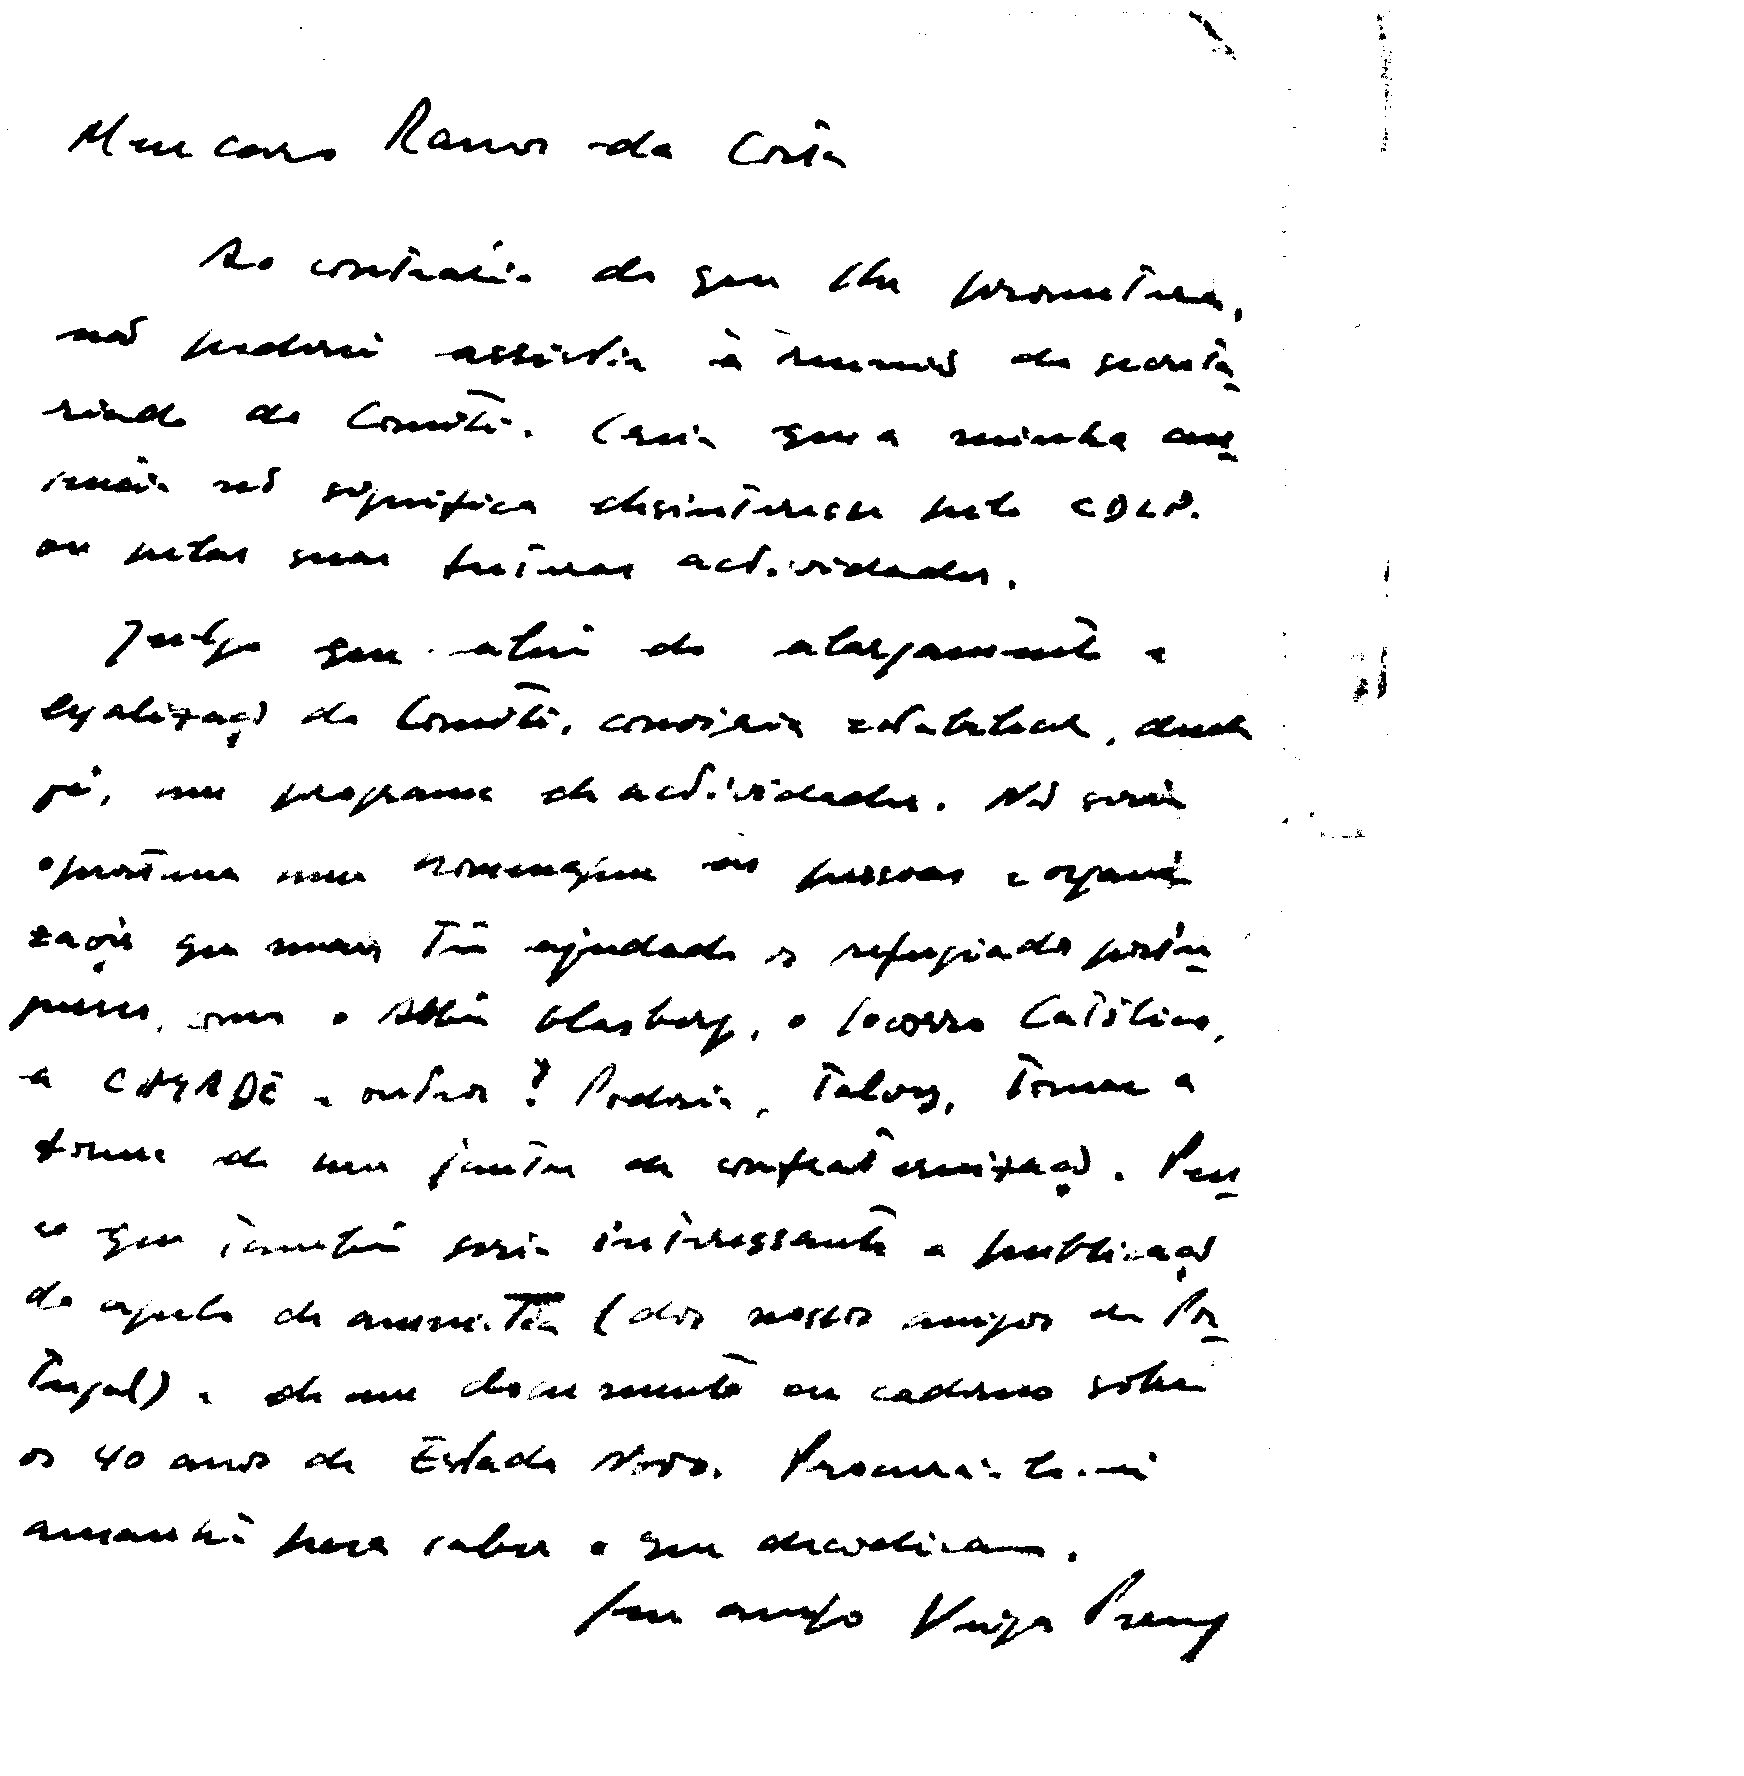 Meu caro Ramos da Costa
Ao contrário do que lhe prometera,
não poderei assistir à reunião do secreta-
riado do Comité. Creia que a minha au-
sência não significa desinteresse pelo CDLP.
ou pelas suas futuras actividades.
Julgo que além do alargamento e
legalização do Comité, conviria estabelecer, desde
já, um programa de actividades. Não seria
oportuna uma homenagem às pessoas e organi-
zações que mais têm ajudado os refugiados portu-
gueses, como o Abbé Glasberg, o Socorro Católico,
a CIMADE e outros? Poderia, talvez, tomar a
forma de um jantar de confraternização. Pen-
so que também seria interessante a publicação
do apelo de amnistia (dos nossos amigos de Por-
tugal) e de um documento ou caderno sobre
os 40 anos de Estado Novo. Procurá-lo-ei
amanhã para saber o que decidiram.
Seu amigo Veiga